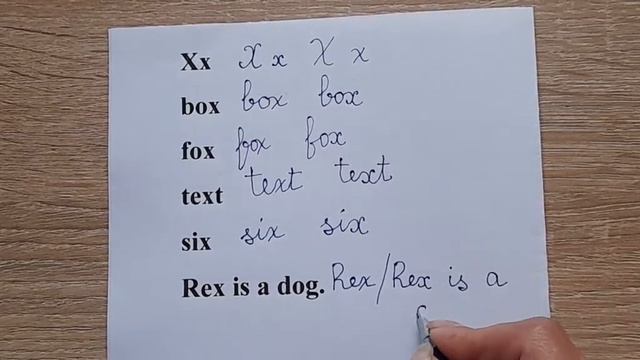 Xx X x X x
box box box
fox fox fox
text text text
six six six
Rex is a dog. Rex/Rex is a